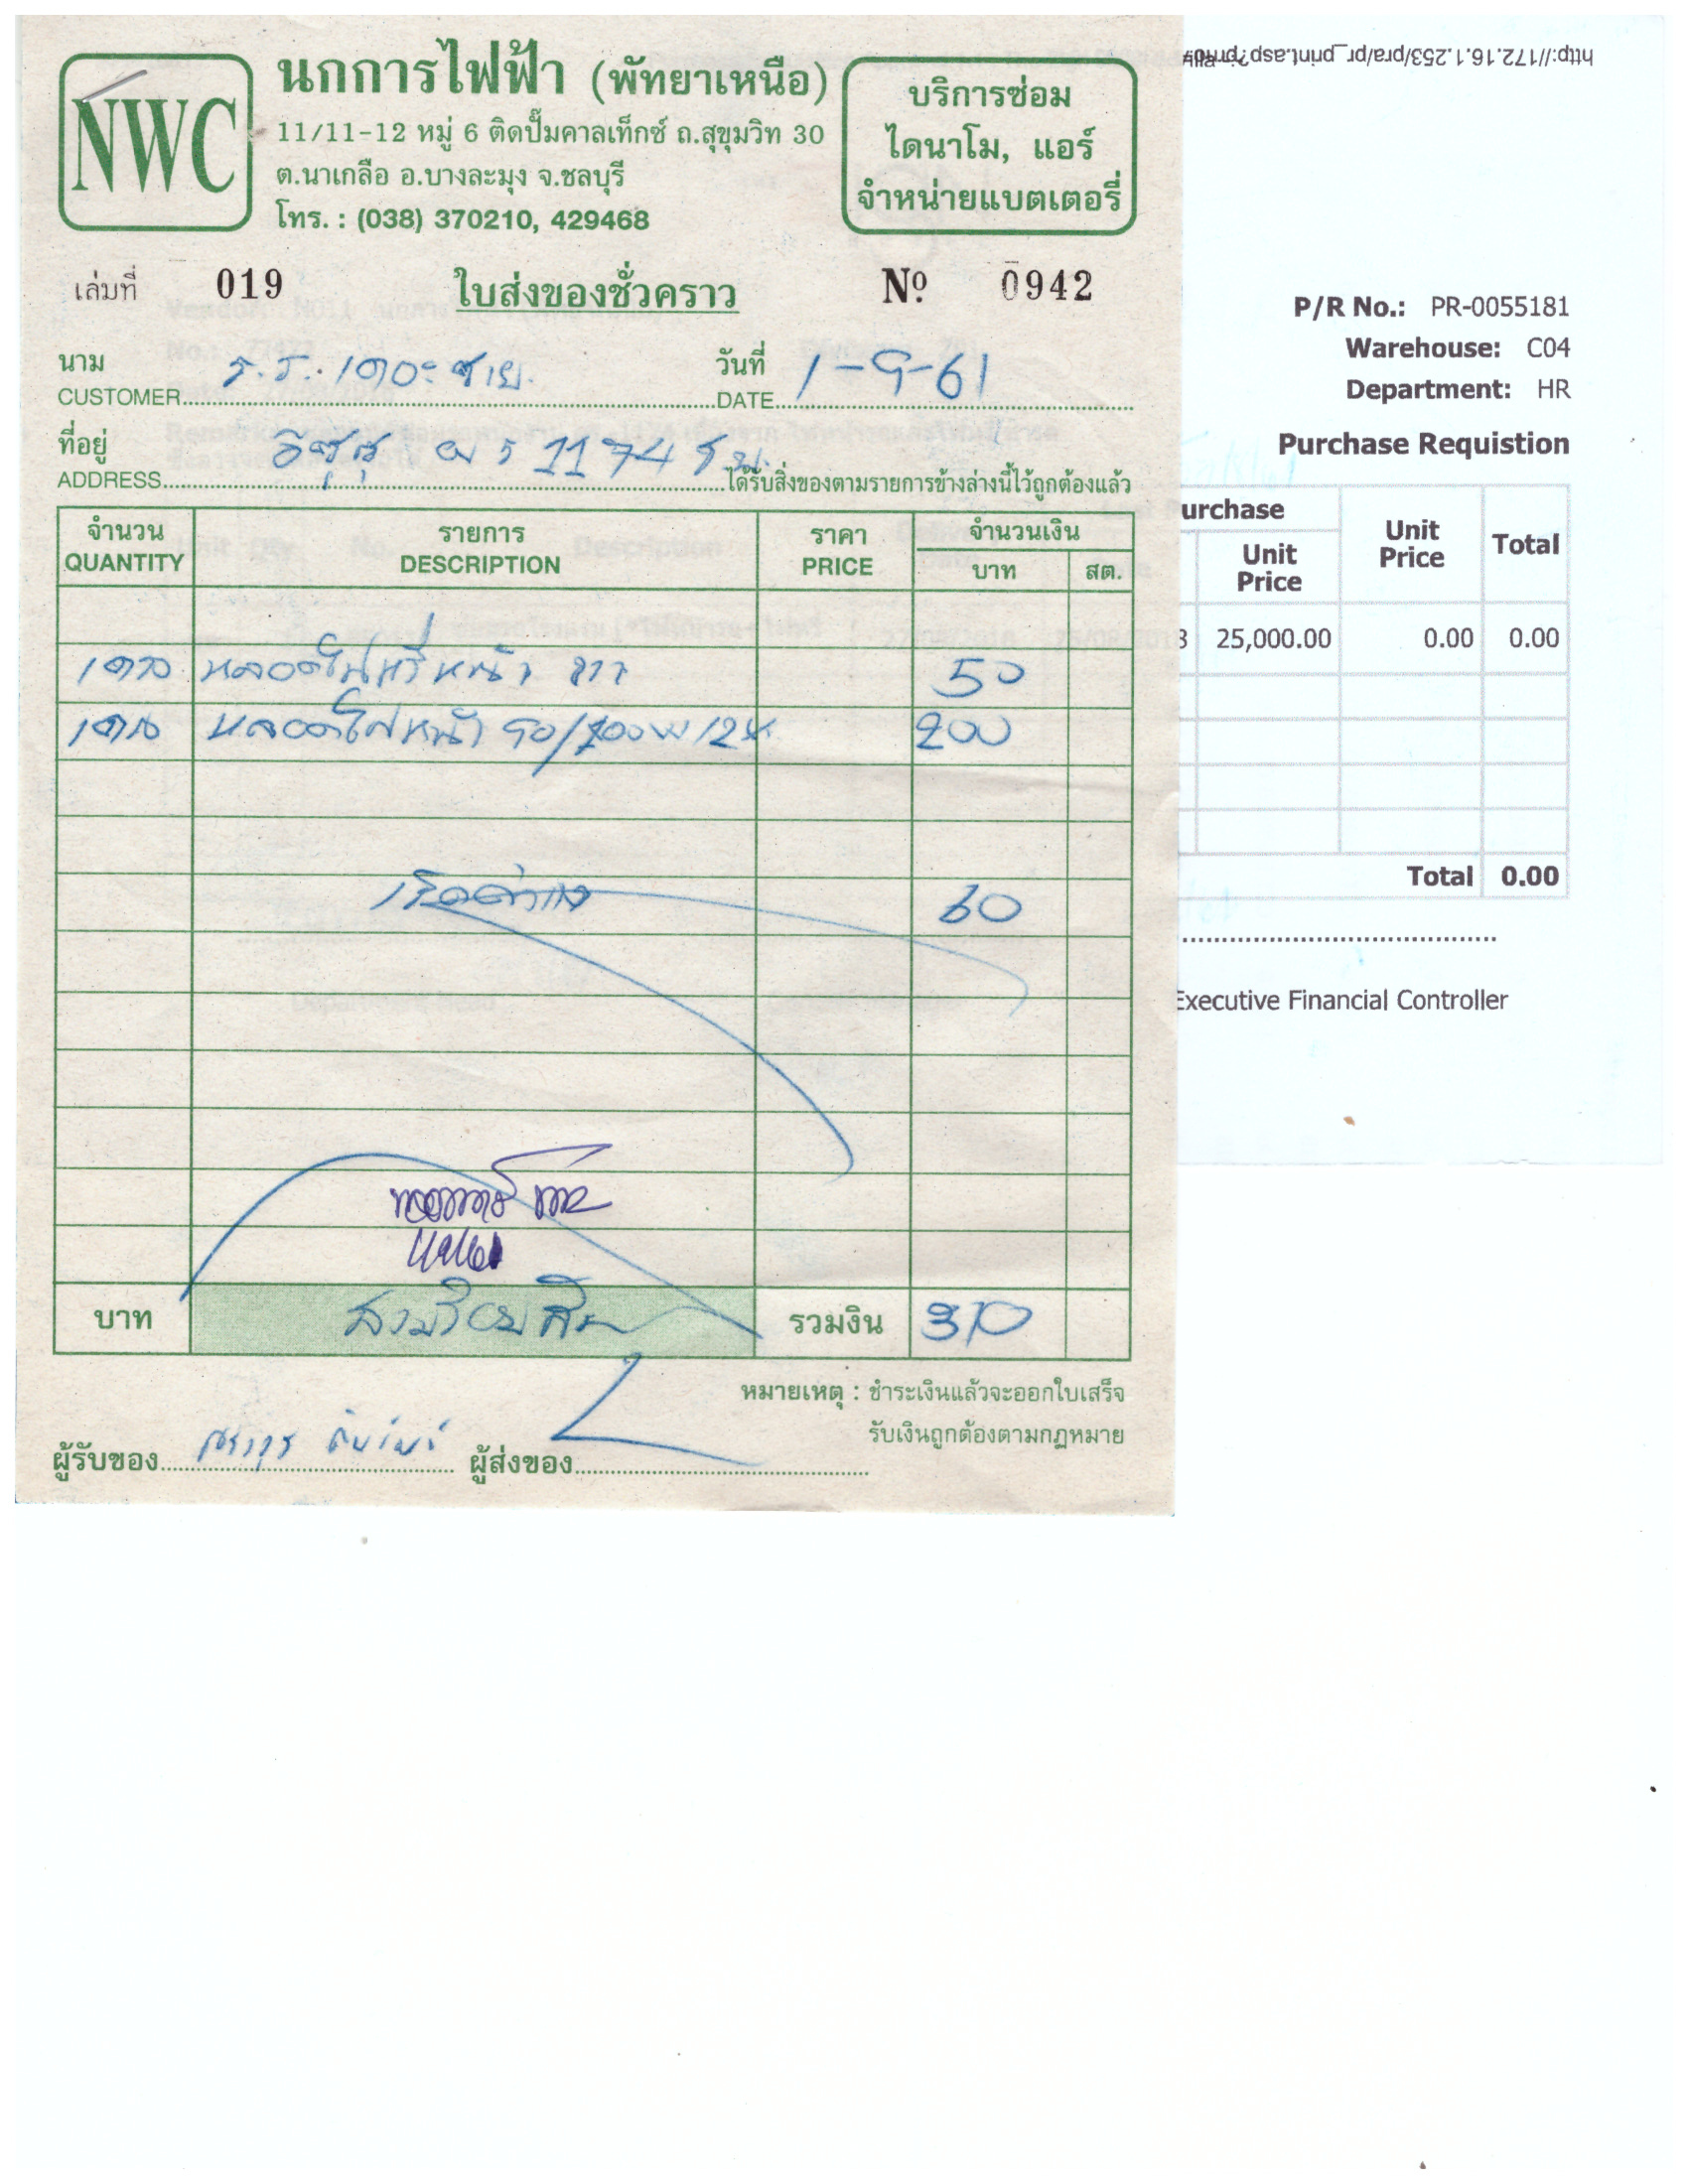 NWC
นกการไฟฟ้า (พัทยาเหนือ)
11/11-12 หมู่ 6 ติดปั๊มคาลเท็กซ์ ถ.สุขุมวิท 30
ต.นาเกลือ อ.บางละมุง จ.ชลบุรี
โทร. : (038) 370210, 429468
บริการซ่อม
ไดนาโม, แอร์
จำหน่ายแบตเตอรี่
เล่มที่ 019 ใบส่งของชั่วคราว Nº 0942
นาม วันที่
CUSTOMER ร.ร. DATE 1-9-61
ที่อยู่
ADDRESS อีซูซุ 1174 ได้รับสิ่งของตามรายการข้างล่างนี้ไว้ถูกต้องแล้ว
จำนวน รายการ ราคา จำนวนเงิน
QUANTITY DESCRIPTION PRICE บาท สต.
หลอดไฟหรี่หน้า ขาว 50
หลอดไฟหน้า 90/100W 12V. 200
60
บาท สามร้อยสิบ รวมเงิน 310
หมายเหตุ : ชำระเงินแล้วจะออกใบเสร็จ
รับเงินถูกต้องตามกฎหมาย
ผู้รับของ ผู้ส่งของ
http://172.16.1.253/pra/pr_print.asp?
P/R No.: PR-0055181
Warehouse: C04
Department: HR
Purchase Requistion
urchase
Unit Price Unit Price Total
25,000.00 0.00 0.00
Total 0.00
Executive Financial Controller